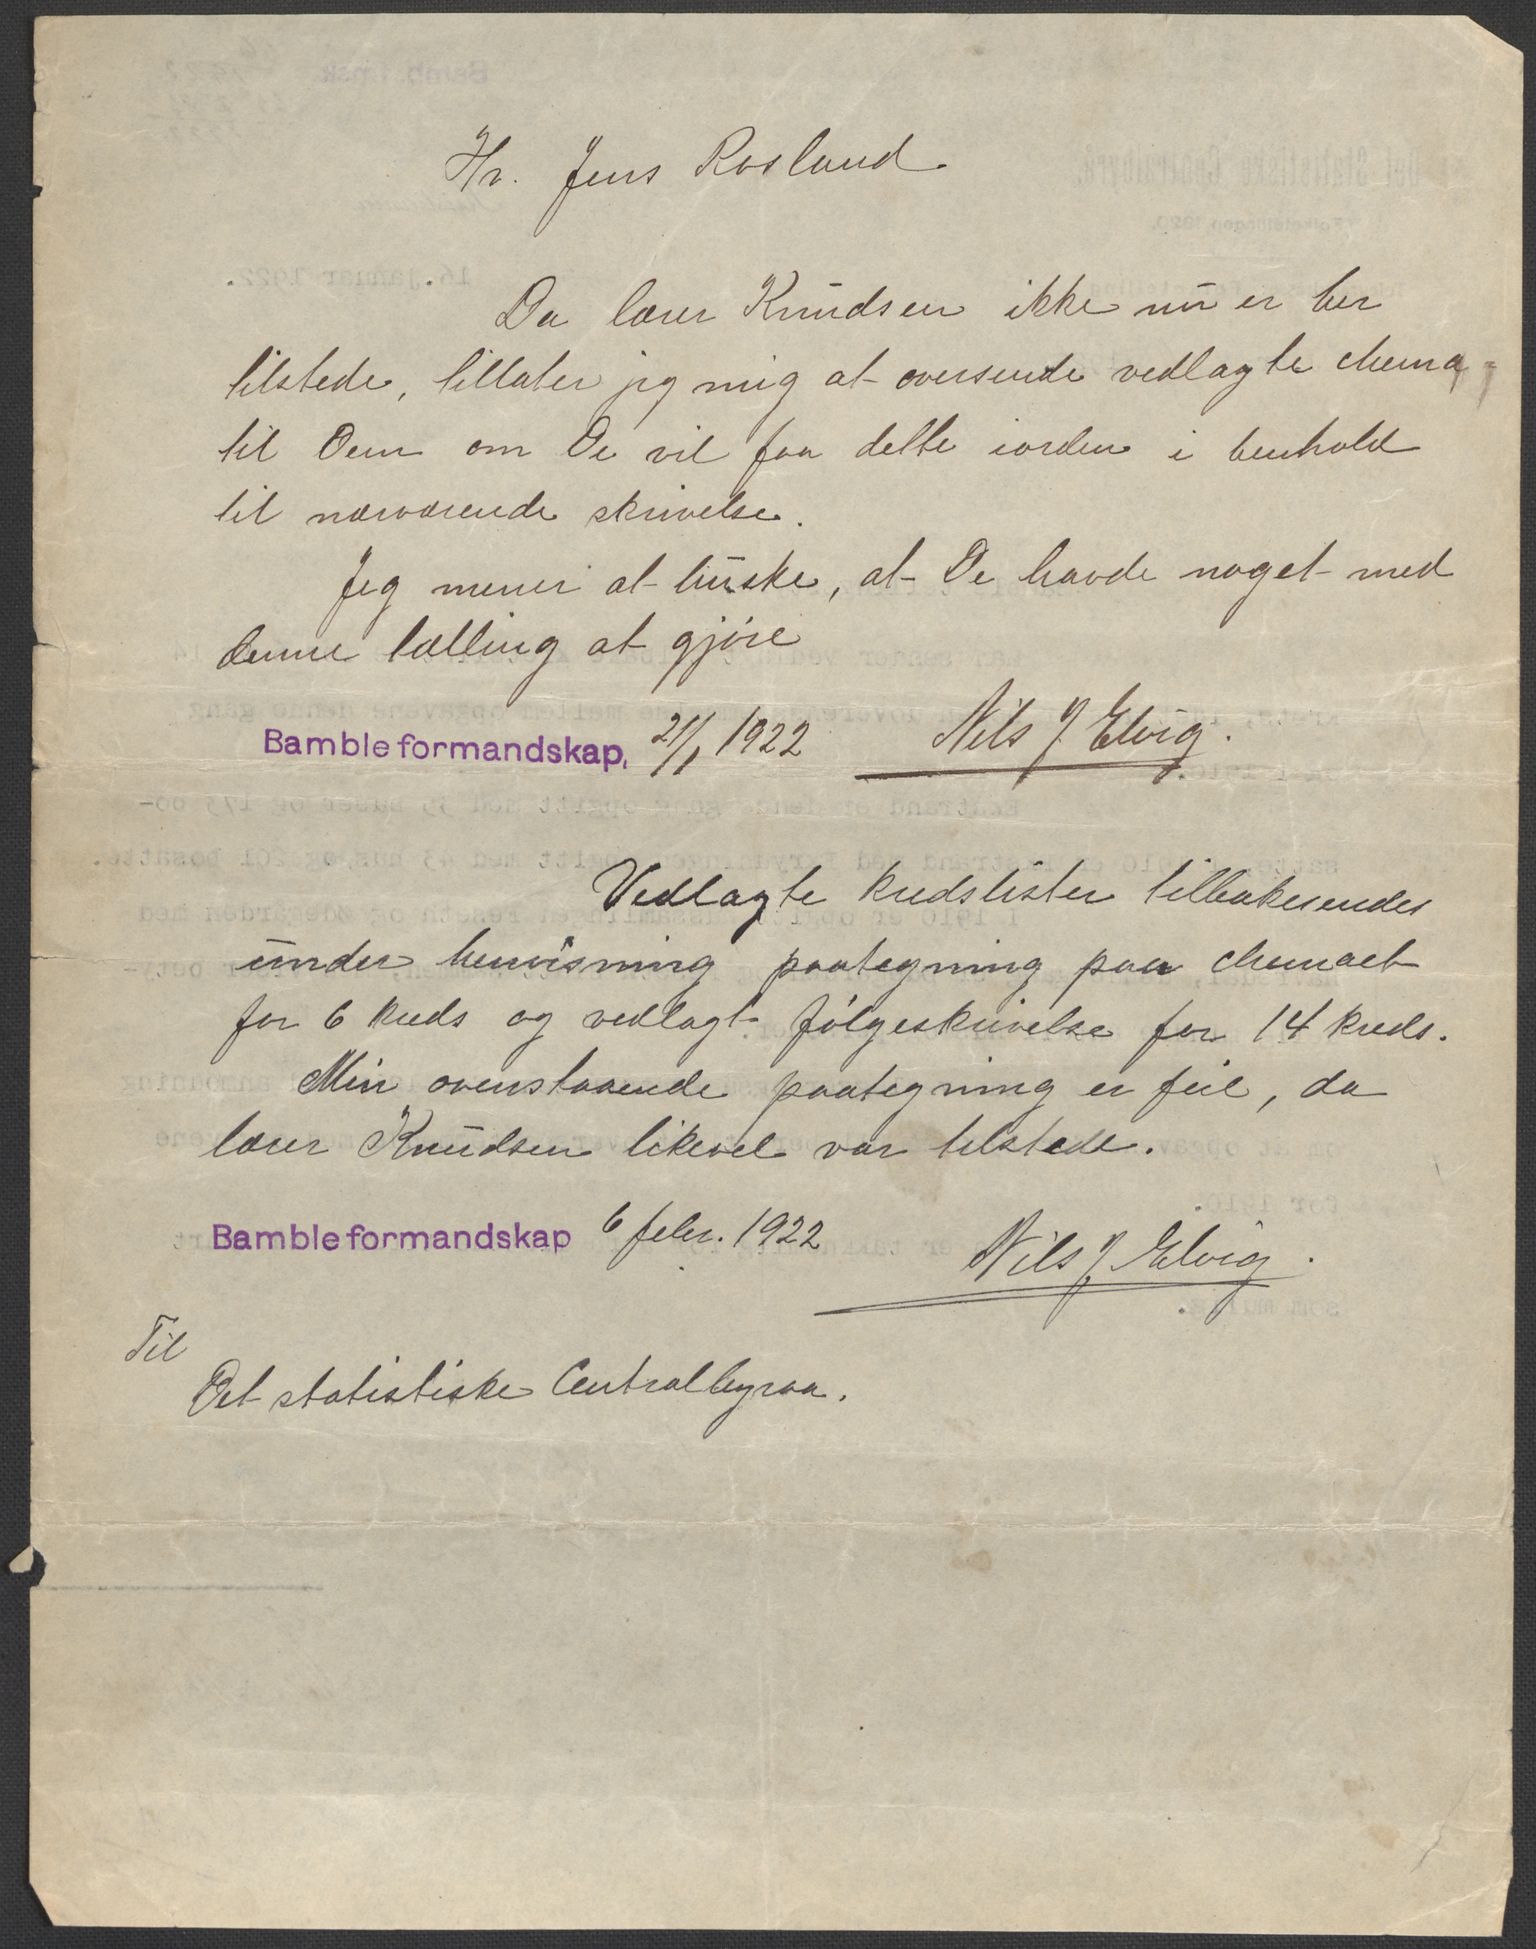 Hr. Jens Rosland
Da lærer Knudsen ikke nu er her
tilstede, tillater jeg mig at oversende vedlagte chema
til Dem om De vil faa dette iorden i henhold
til nærværende skrivelse.
Jeg mener at huske, at De havde noget med
denne tælling at gjøre
Bamble formandskap, 21/1 1922 Nils J Elvig.
Vedlagte kredslister tilbakesendes
under henvisning paategning paa chemaet
for 6 kreds og vedlagt følgeskrivelse for 14 kreds.
Min ovenstaaende paategning er feil, da
lærer Knudsen likevel var tilstede.
Bamble formandskap 6 febr. 1922
Nils J Elvig.
Til
Det statistiske Centralbyraa.